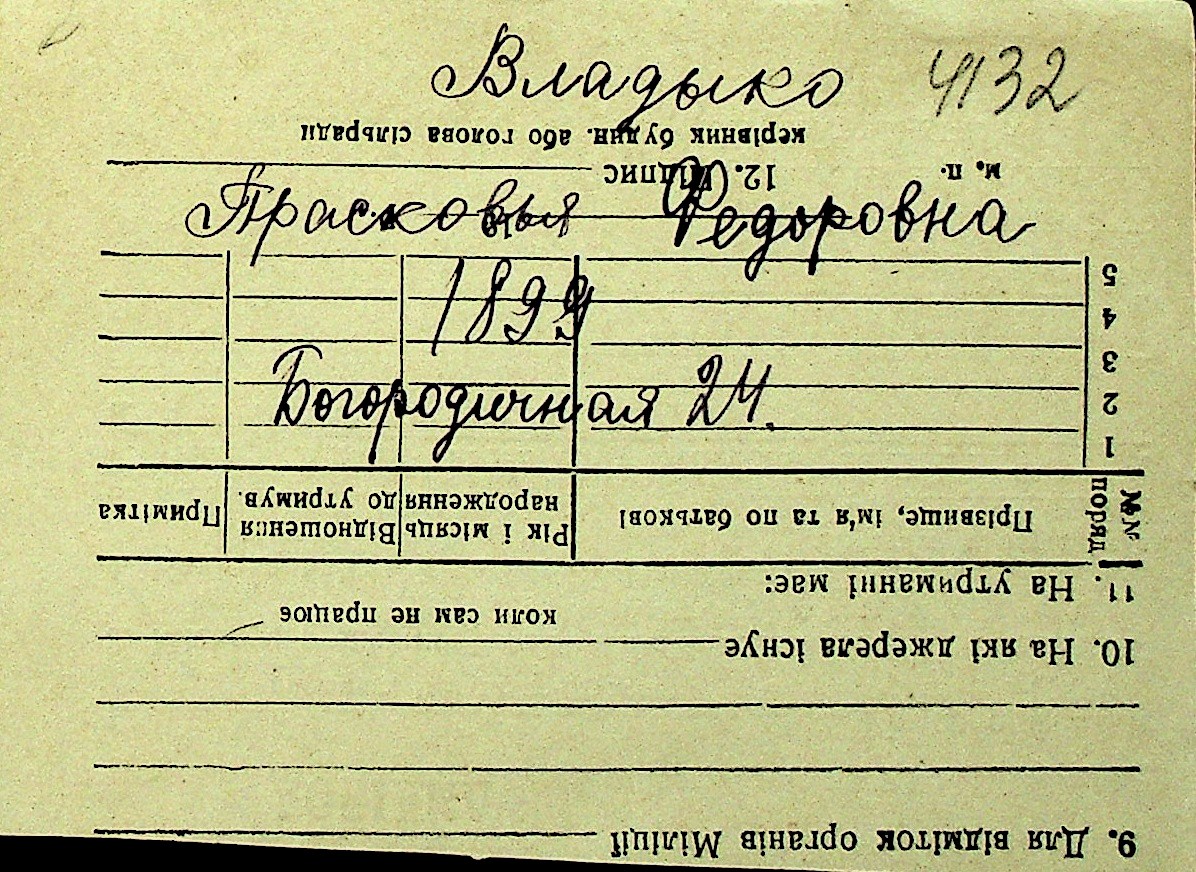 Владыко 4132
Прасковья Федоровна
1899
Богородичная 24.
9. Для відміток органів Міліції
10. На які джерела існує
коли сам не працює
11. На утриманні має:
№№ поряд. Прізвище, ім'я та по батькові Рік і місяць народження Відношення до утримув. Примітка
1
2
3
4
5
м. п. 12. Підпис
керівник будин. або голова сільради